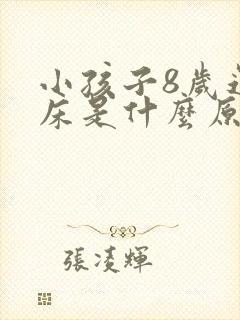 小孩子8歲
床是什麼原
張凌輝